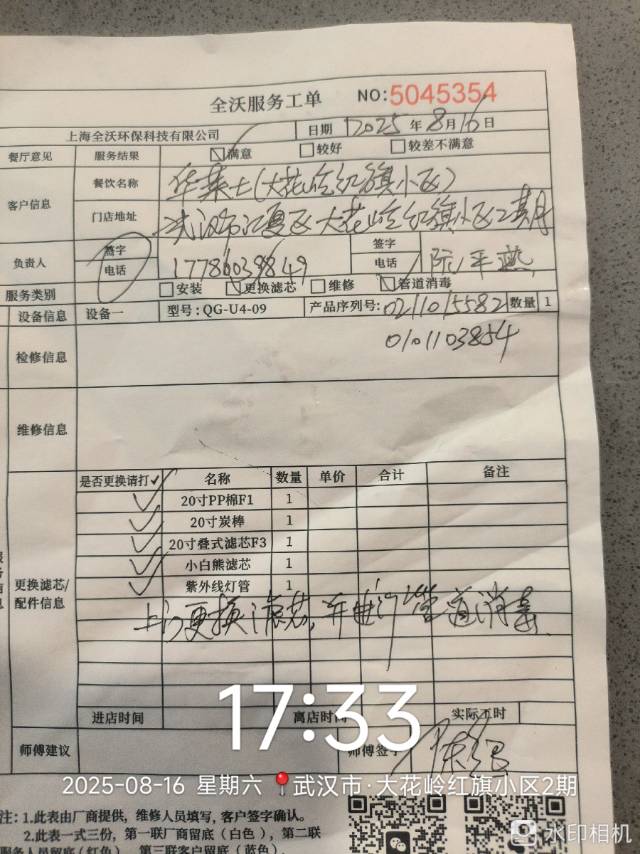 全沃服务工单 NO:5045354
上海全沃环保科技有限公司 日期 2025 年 8 月 16 日
餐厅意见 服务结果 满意 较好 较差不满意
客户信息 餐饮名称 华莱士(大花岭红旗小区)
门店地址 武汉市江夏区大花岭红旗小区2期
负责人 签字 电话 17786039849 签字 电话
服务类别 安装 更换滤芯 维修 管道消毒
设备信息 设备一 型号: QG-U4-09 产品序列号: 0211015582 数量 1
0101103854
检修信息
维修信息
更换滤芯/配件信息
是否更换请打✓ 名称 数量 单价 合计 备注
✓ 20寸PP棉F1 1
✓ 20寸炭棒 1
✓ 20寸叠式滤芯F3 1
✓ 小白熊滤芯 1
✓ 紫外线灯管 1
上门更换滤芯,并进行管道消毒
进店时间 离店时间 实际工时
17:33
师傅建议 师傅签字
2025-08-16 星期六 武汉市·大花岭红旗小区2期
注: 1.此表由厂商提供，维修人员填写，客户签字确认。
2.此表一式三份，第一联厂商留底（白色），第二联
服务人员留底(红色)，第三联客户留底（蓝色）。
水印相机